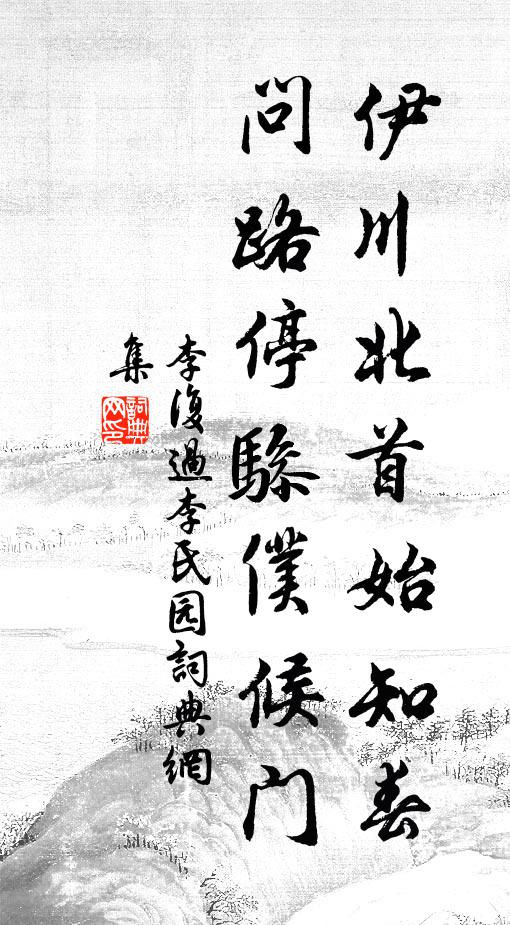 伊川北首始知春
问路停驂僕候门
李復過李氏园詞典網
集
詞典網印